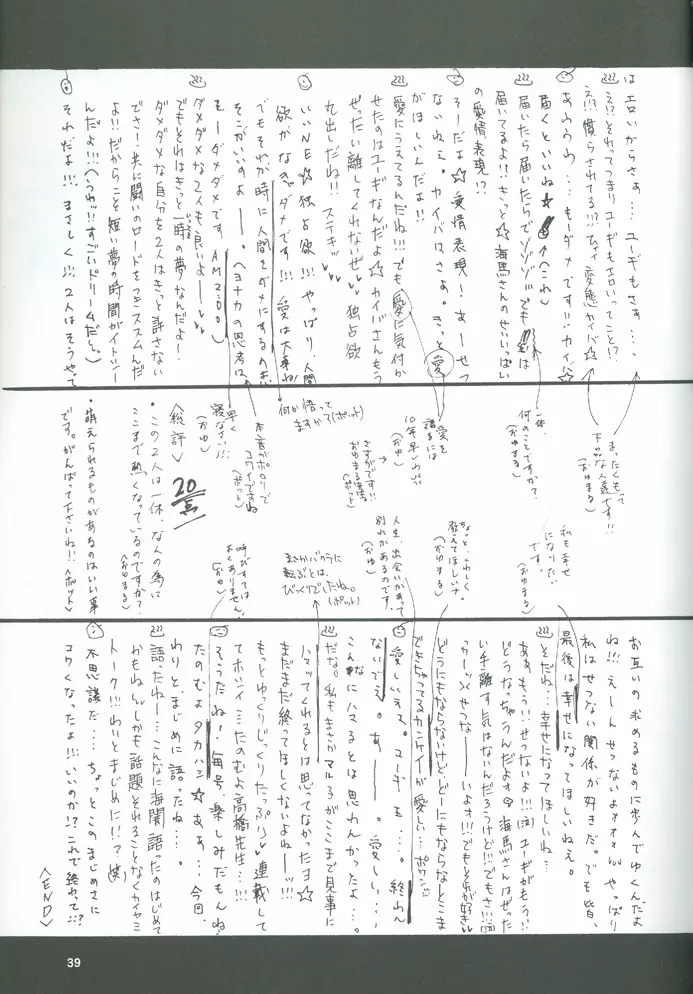 はエロいからさぁ…ユーギもさぁ…、
え!?それってつまりユーギもエロいってこと!?
え!!慣らされてる!!?ひィィ変態カイバ☆
あうううわ…もーダメです!!カイバ☆
届くといいね☆(へこれ)
届いたら届いたらでゾゾゾ!!でも は
届いてるよ!!きっと☆海馬さんのせいいっぱい
の愛情表現!?
そーだよ☆愛情表現!あーせつ
ないねぇ。カイバはさぁ。きっと愛
がほしいんだよ!!
愛にうえてるんだね!!!でも愛に気付か
せたのはユーギなんだよ☆カイバさんもう
ぜったい離してくれないぜ 独占欲
丸出しだね!!ステキ
いいNE☆独占欲!!!やっぱり、人間
欲がなきゃダメです!!!愛は大事ね
でもそれが時に人間をダメにするのよ
そこがいいのよー。へヨナカの思考は、
もーダメダメです AM2:00)
ダメダメな2人も良いよー
でもそれはきっと一時の夢なんだよー!
ダメダメな自分を2人はきっと許さない
でさ!共に闘いのロードをつきススムんだ
よ!!だからこそ短い夢の時間がイトシー
んだよ!!!(へうわッ!!すごいドリームだと)
それだよ!!!まさしく!!2人はそうやって
まったくもって
下品な人達です!!
(おゆまる)
一体、
何のことですか?
(おゆまる)
愛を
語るには
10年早いわ!!
(おゆ)
さすがです!!
(ポット)
何か悟って
ますかで(ポット)
本音がポロリで
コワイですね
(ポット)
早く
寝なさい!!!
(おゆ)
<総評> 20点
・この2人は一体、なんの為に
ここまで熱くなっているのですか?
<おゆまる>
・萌えられるものがあるのはいい事
です。がんばって下さいね!!<ポット>
私も幸せ
になりたい
です。
(おゆまる)
ちょっと、くわしく
教えてほしいナ
(おゆまる)
人生、出会いがあって
別れがあるのです。
(おゆ)
まさかバクラに
転ぶとは、
びっくりでしたね。
(ポット)
呼びすては
よくありません!
(おゆ)
お互いの求めるものに歩んでゆくんだよ
ね!!!えーんせつないよォォォ やっぱり
私はせつない関係が好きだ。でも皆、
最後は幸せになってほしいねぇ。
そだね…幸せになってほしいね…
ああもう!!せつないよ!!(泣)ユーギがもう!!
どうなっちゃうんだよォ 海馬さんはぜった
い手離す気はないんだろうけど!!でもさ!!(泣)
っかーッ せつなーいよォ!!!でもそれが好き
どうにもならないけどどーにもならないとこま
できちゃってるカンケイが愛しい…ポワン
愛しいえぇ。ユーギぃ…。終わん
ないでぇ。あー。愛しい…、
こんなにハマるとは思わんかったよ…。
だな。私もまさかマルろがここまで見事に
ハマッてくれるとは思ってなかったヨ☆
まだまだ終ってほしくないよねーッ!!!
もっとゆっくりじっくりたっぷり 連載して
てホシイ…たのむよ高橋先生…!!!
そうだね!毎号、楽しみだもんね
たのむよタカハシ☆あぁ…今回、
わりとまじめに語ったね…。
語ったねー…こんなに海闇語ったのはじめて
かもね しかも話題それることなくカイヤミ
トーク!!!わりとまじめに!!?(笑)
不思議だ…ちょっとこのまじめさに
コワくなったよ!!!いいのか!?これで終わって…!?
<END>
39